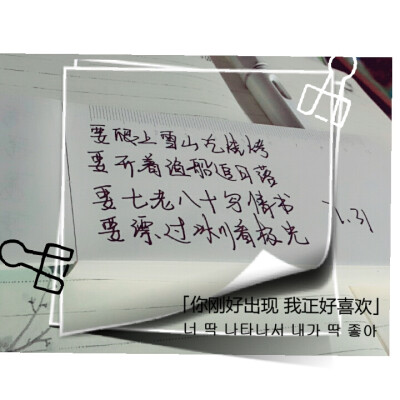 要爬上雪山吃烧烤
要开着渔船追日落
要七老八十写情书
要漂过冰川看极光
7.31
「你刚好出现 我正好喜欢」
너 딱 나타나서 내가 딱 좋아